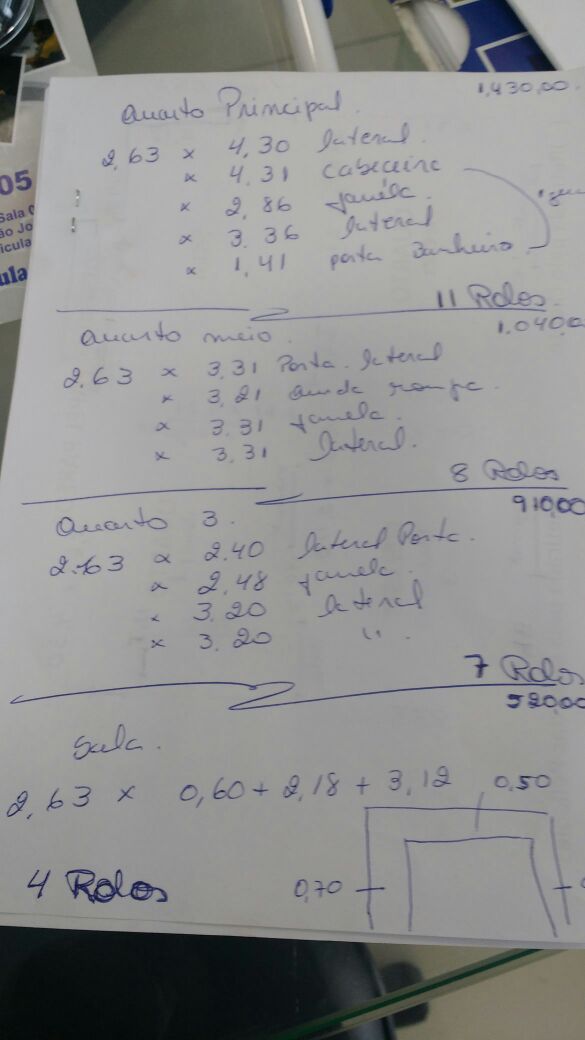 05
Sala
ão Jo
icula
ula
1.430,00
Quarto Principal.
2,63 x 4,30 lateral.
x 4,31 cabeceira
x 2,86 janela.
x 3.36 lateral
x 1,41 porta Banheiro.
11 Rolos.
1.040,0
Quarto meio.
2,63 x 3,31 Porta. lateral
x 3,21 Guarda roupa.
x 3,31 janela.
x 3,31 lateral.
8 Rolos
910,00
Quarto 3.
2.63 x 2.40 lateral Porta.
x 2,48 janela.
x 3.20 lateral
x 3.20 "
7 Rolos
520,00
Sala.
2,63 x 0,60 + 2,18 + 3,12 0,50
4 Rolos 0,70